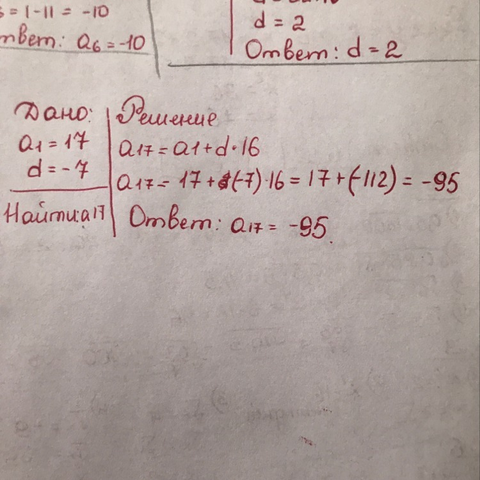 = 1-11 = -10
твет: a6 = -10
d = 2
Ответ: d = 2
Дано:
a1 = 17
d = -7
Найти: a17
Решение
a17 = a1 + d · 16
a17 = 17 + (-7) · 16 = 17 + (-112) = -95
Ответ: a17 = -95.